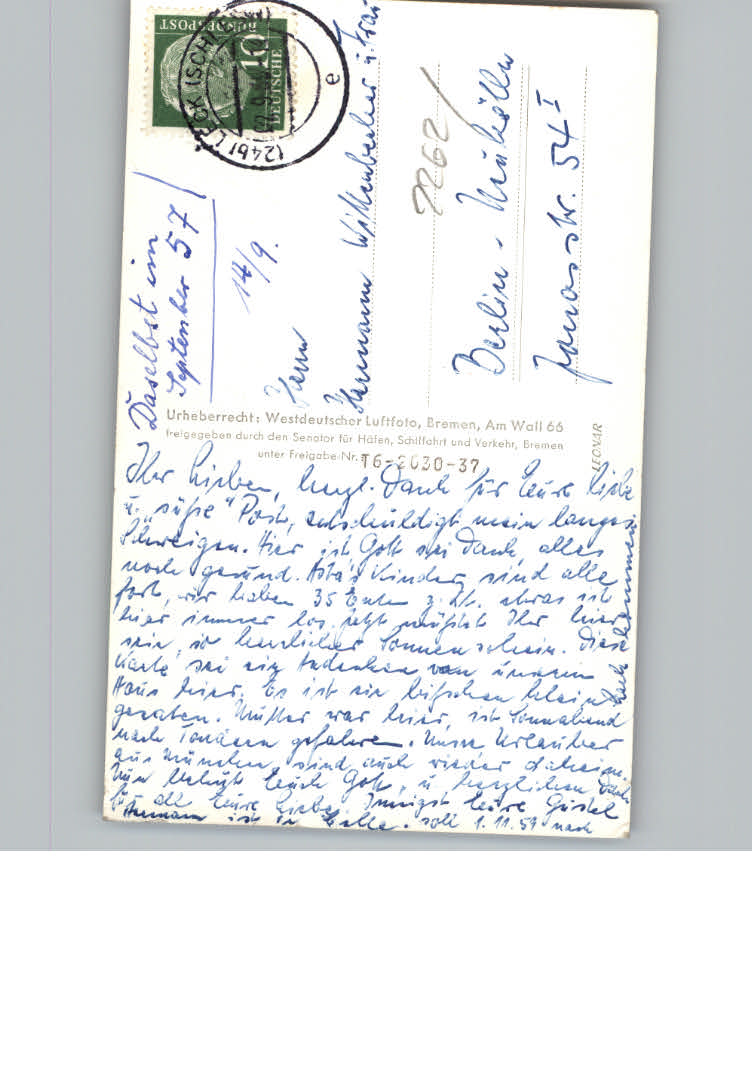 DEUTSCHE
BUNDESPOST
10
(24b) LECK (SCHLESW)
e
Daselbst im
September 57
14/9.
Herrn
Hermann Wittenbecher u. Frau
Berlin-Neukölln
Jonasstr. 54 I
Urheberrecht: Westdeutscher Luftfoto, Bremen, Am Wall 66
freigegeben durch den Senator für Häfen, Schiffahrt und Verkehr, Bremen
unter Freigabe-Nr. T6-2030-37
LEONAR
Ihr Lieben, herzl. Dank für Eure liebe
u. „süße" Post, entschuldigt mein langes
Schweigen. Hier ist Gott sei Dank, alles
noch gesund. Kinder, sind alle
fort, wir haben 35 z. Zt. etwas ist
hier immer los, jetzt müßtet Ihr hier
sein, so herrlicher Sonnenschein. Diese
Karte sei ein Andenken von unserm
Haus hier. Es ist ein bißchen klein
geraten. Mutter war hier, ist Sonnabend
nach Tondern gefahren. Unsre Urlauber
aus München, sind auch wieder daheim.
Nun behüt Euch Gott, u. herzlichen Dank
für all Eure Liebe. Innigst Eure Gustel
Hermann ist in soll 1.11.59 nach
kommen